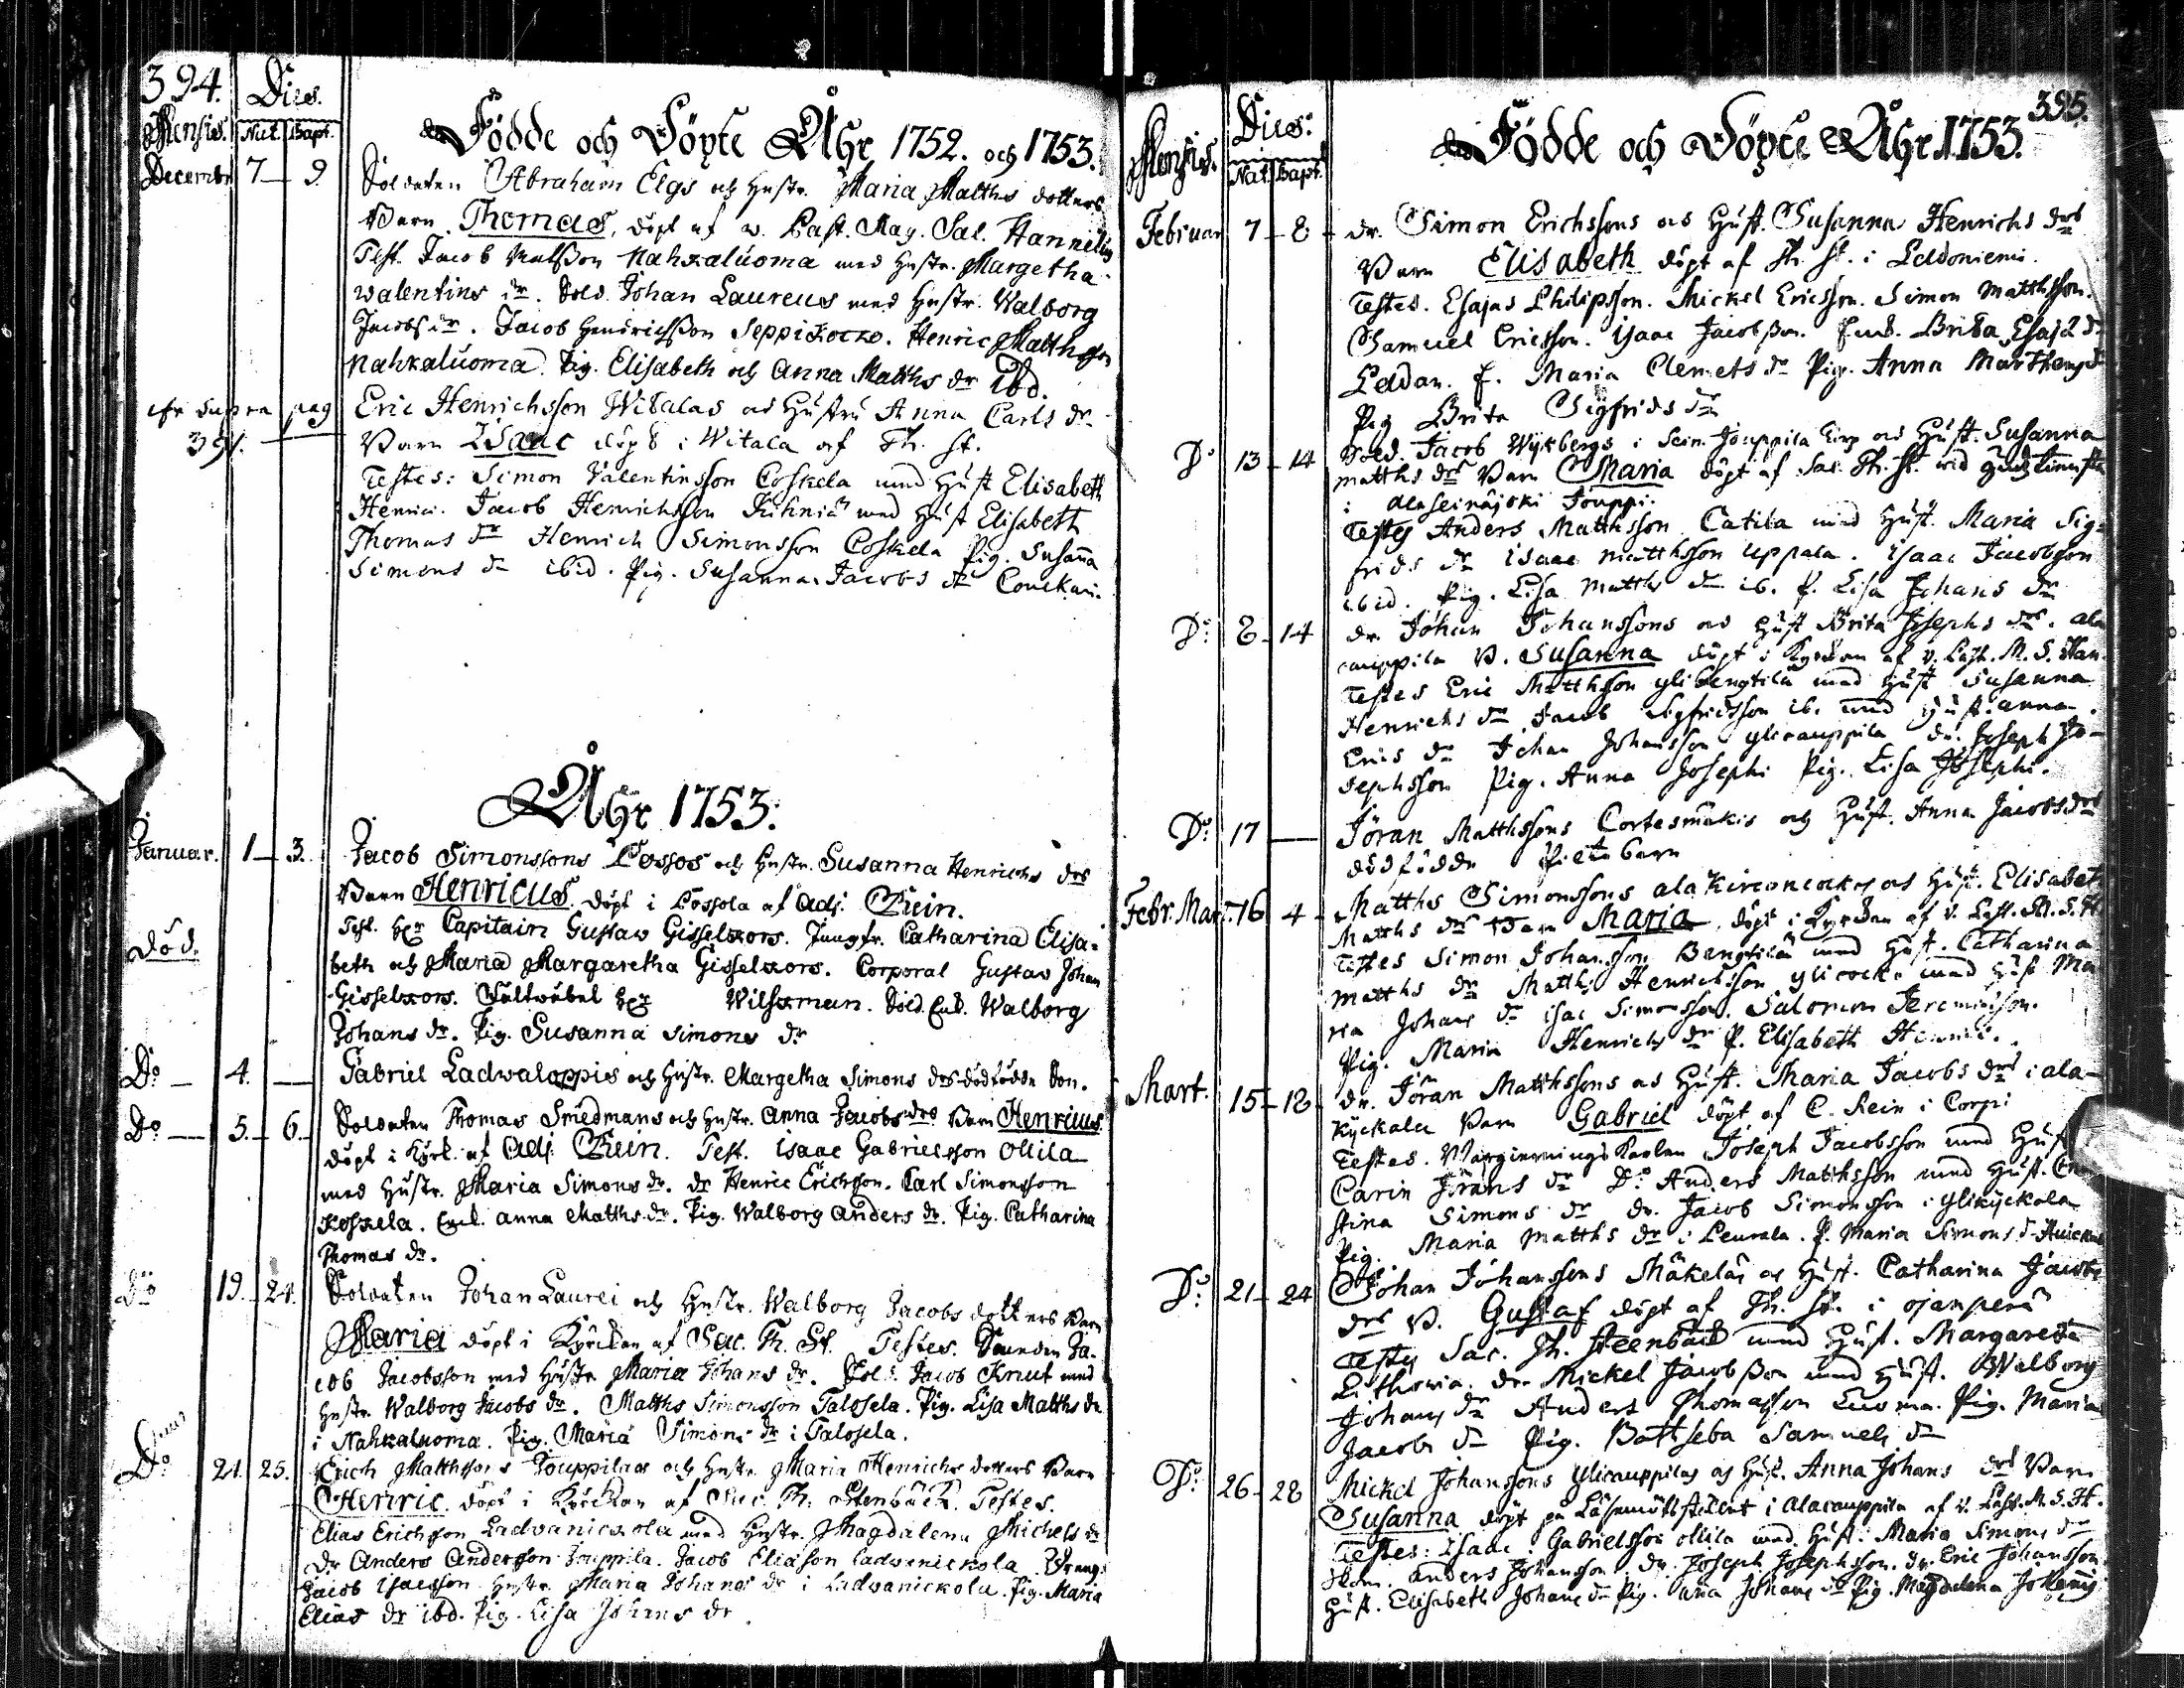 394.
Dies.
Mensis. Nat. Bapt.
Födde och Döpte Åhr 1752. och 1753.
Decembr 7 — 9. Soldaten Abraham Elgs och Hustr. Maria Matths dotters
Barn Thomas, döpt af v. Past. Mag. Sal. Hannelius
Test. Jacob Matsson Nahkaluoma med Hustr. Margetha
Valentins dr. Sold. Johan Laureus med Hustr. Walborg
Jacobs dr. Jacob Hendrichsson Seppikocko. Henric Matthsson
Nahkaluoma. Pig. Elisabeth och Anna Matths dr ibd.
cfr supra pag 391. Eric Henrichsson Witalas och Hustru Anna Carls dr
Barn Isaac döpt i Witala af Th. St.
Testes: Simon Valentinsson Coskela med Hust Elisabeth
Henrici. Jacob Henrichsson Kihniä med Hust Elisabeth
Thomas dr Henrich Simonsson Coskela Pig. Susanna
Simons dr ibid. Pig. Susanna Jacobs dr Couckari.
Åhr 1753.
Januar. 1 — 3. Jacob Simonssons Possos och Hustr. Susanna Henrichs drs
Barn Henricus. döpt i Possola af Adj. Rein.
död. Test. Hr Capitain Gustav Gisselkors. Jungfr. Catharina Elisa-
beth och Maria Margaretha Gisselkors. Corporal Gustav Johan
Gisselkors. Fältwäbel Hr Wilskman. Sold. Enk. Walborg
Johans dr. Pig. Susanna Simons dr
Do — 4. — Gabriel Ladvaloppis och Hustr. Margetha Simons drs dödfödde Son.
Do — 5. — 6. Soldaten Thomas Smedmans och Hustr. Anna Jacobs drs Barn Henricus
döpt i Kyrk. af Adj. Rein. Test. Isaac Gabrielsson Ollila
med Hustr. Maria Simons dr. dr Henric Erichsson. Carl Simonsson
Koskela. Enk. Anna Matths dr. Pig. Walborg Anders dr. Pig. Catharina
Thomas dr.
Do 19. — 24. Soldaten Johan Laurei och Hustr. Walborg Jacobs dotters Barn
Maria döpt i Kyrckan af Sac. Th. St. Testes. Ja-
cob Jacobsson med Hustr Maria Johans dr. Sold. Jacob Knut med
Hustr. Walborg Jacobs dr. Matths Simonsson Talosela. Pig. Lisa Matths dr
i Nahkaluoma. Pig. Maria Simons dr i Talosela.
Do 21. 25. Erich Matthssons Jouppilas och Hustr. Maria Henrichs dotters Barn
Henric. döpt i Kyrckan af Sac. Th. Stenbäck. Testes.
Elias Erichsson Ladvanickola med Hustr. Magdalena Michels dr
Dr Anders Andersson Jouppila. Jacob Eliasson Ladvanickola. Dräng.
Jacob Isacsson Hustr. Maria Johans dr i Ladvanickola. Pig. Maria
Elias dr ibd. Pig. Lisa Johans dr.
395.
Mensis. Dies. Nat. Bapt.
Födde och Döpte Åhr 1753.
Februar 7 — 8 dr. Simon Erichssons och Hust. Susanna Henrichs drs
Barn Elisabeth döpt af Th. St. i Ladoniemi.
Testes. Esajas Philipsson. Mickel Ericsson. Simon Matthsson.
Samuel Ericsson. Isaac Jacobsson. Enk. Brita Esaiæ dr
Ladan. f. Maria Clemets dr Pig. Anna Marthens dr
Pig Brita Sigfrids dr
Do 13 — 14 Sold. Jacob Wykbergs i Sein. Jouppila och Hust. Susanna
Matths drs Barn Maria döpt af Sac. Th. St. vid
i Alaseinäjoki Jouppi.
Testes Anders Matthsson Catila med Hust. Maria Sig-
frids dr Isaac Matthsson Uppala. Isaac Jacobsson
ibid. Pig. Lisa Matths dr ib. f. Lisa Johans dr
Do 8 — 14 dr. Johan Johanssons och Hust Brita Josephs drs. Ala
rauppila B. Susanna döpt i Kyrckan af v. Past. M. S. Han.
Testes Eric Matthsson Ylibengtilä med Hust Susanna
Henrichs dr Jacob Sigfridsson ib. med Hust. Anna
Erics dr Johan Johansson Ylirauppila dr. Joseph Jo-
sephsson Pig. Anna Josephi Pig. Lisa Josephi.
Do 17 — Jöran Matthssons Cortesmäkis och Hust. Anna Jacobs drs
dödfödde barn
Febr. Mart. 16 4 Matths Simonssons Alakirconcockos och Hust. Elisabet
Matths drs Barn Maria, döpt i Kyrckan af v. Past. M. S. H
Testes Simon Johansson Bengtilä med Hust. Catharina
Matths dr Matths Henrichsson Ylicocko med Hust Ma
ria Johans dr Isac Simonsson. Salomon Jeremiasson.
Pig. Maria Henrichs dr P. Elisabeth Henrici.
Mart. 15 — 18 dr. Jöran Matthssons och Hust. Maria Jacobs drs i Ala-
kyckala Barn Gabriel döpt af C. Rein i Corpi
Testes. Joseph Jacobsson med Hust
Carin Jörans dr Do Anders Matthsson med Hust. Chri
stina Simons dr dr. Jacob Simonsson i Ylikyckala
Pig. Maria Matths dr i Leurala. P. Maria Simons dr
Do 21 — 24 Johan Johanssons Mäkeläs och Hust. Catharina Jacobs
drs B. Gustaf döpt af Th. St. i Ojanperä
Testes Sac. Th. Steenbäck med Hust. Margareta
Lithovia. dr Mickel Jacobsson med Hust. Walborg
Johans dr Anders Thomasson Luoma. Pig. Maria
Jacobs dr Pig. Bathseba Samuels dr
Do 26 — 28 Mickel Johanssons Ylirauppilas och Hust. Anna Johans drs Barn
Susanna döpt på Läsemötstället i Alarauppila af v. Past. M. S. H.
Testes: Isaac Gabrielsson Ollila med Hust. Maria Simons dr
Anders Johansson dr. Joseph Josephsson. dr. Eric Johansson
Hust. Elisabeth Johans dr Pig. Anna Johans dr Pig Magdalena Johannis